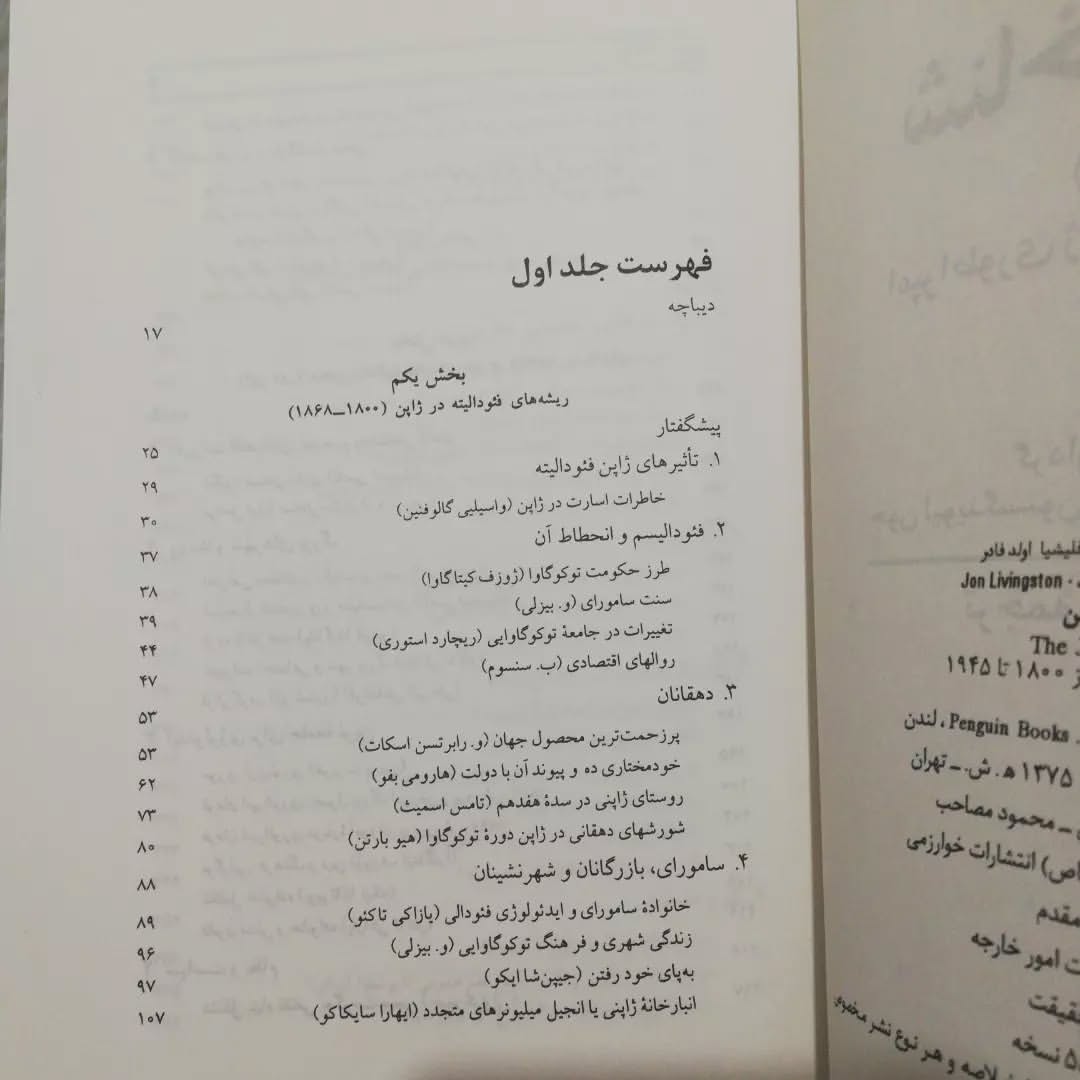 فهرست جلد اول
دیباچه ۱۷
بخش یکم
ریشه‌های فئودالیته در ژاپن (۱۸۰۰ــ۱۸۶۸)
پیشگفتار ۲۵
۱. تأثیرهای ژاپن فئودالیته ۲۹
خاطرات اسارت در ژاپن (واسیلیی گالوفنین) ۳۰
۲. فئودالیسم و انحطاط آن ۳۷
طرز حکومت توکوگاوا (ژوزف کیتاگاوا) ۳۸
سنت سامورای (و. بیزلی) ۳۹
تغییرات در جامعهٔ توکوگاوایی (ریچارد استوری) ۴۴
روالهای اقتصادی (ب. سنسوم) ۴۷
۳. دهقانان ۵۳
پرزحمت‌ترین محصول جهان (و. رابرتسن اسکات) ۵۳
خودمختاری ده و پیوند آن با دولت (هارومی بفو) ۶۲
روستای ژاپنی در سدهٔ هفدهم (تامس اسمیث) ۷۳
شورشهای دهقانی در ژاپن دورهٔ توکوگاوا (هیو بارتن) ۸۰
۴. سامورای، بازرگانان و شهرنشینان ۸۸
خانوادهٔ سامورای و ایدئولوژی فئودالی (یازاکی تاکئو) ۸۹
زندگی شهری و فرهنگ توکوگاوایی (و. بیزلی) ۹۶
به‌پای خود رفتن (جیپن‌شا ایکو) ۹۷
انبارخانهٔ ژاپنی یا انجیل میلیونرهای متجدد (ایهارا سایکاکو) ۱۰۷
شنا
امپراطوری
جون لیوینگستون
فلیشیا اولدفادر
Jon Livingston
The
از ۱۸۰۰ تا ۱۹۴۵
Penguin Books، لندن
۱۳۷۵ ه‍. ش. ــ تهران
ــ محمود مصاحب
انتشارات خوارزمی
مقدم
امور خارجه
حقیقت
نسخه
خلاصه و هر نوع نشر